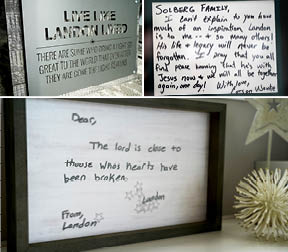 LIVE LIKE
LANDON LIVED
THERE ARE SOME WHO BRING A LIGHT SO
GREAT TO THE WORLD THAT EVEN AFTER
THEY ARE GONE THE LIGHT REMAINS
SOLBERG FAMILY,
I can't explain to you how
much of an inspiration Landon
is to me -- & so many others!
His life & legacy will never be
forgotten. I pray that you all
find peace knowing that he's with
Jesus now & we will all be together
again, one day!
With love,
Carson
Dear,
The lord is close to
thouse who's hearts have
been broken.
Landon
From,
Landon